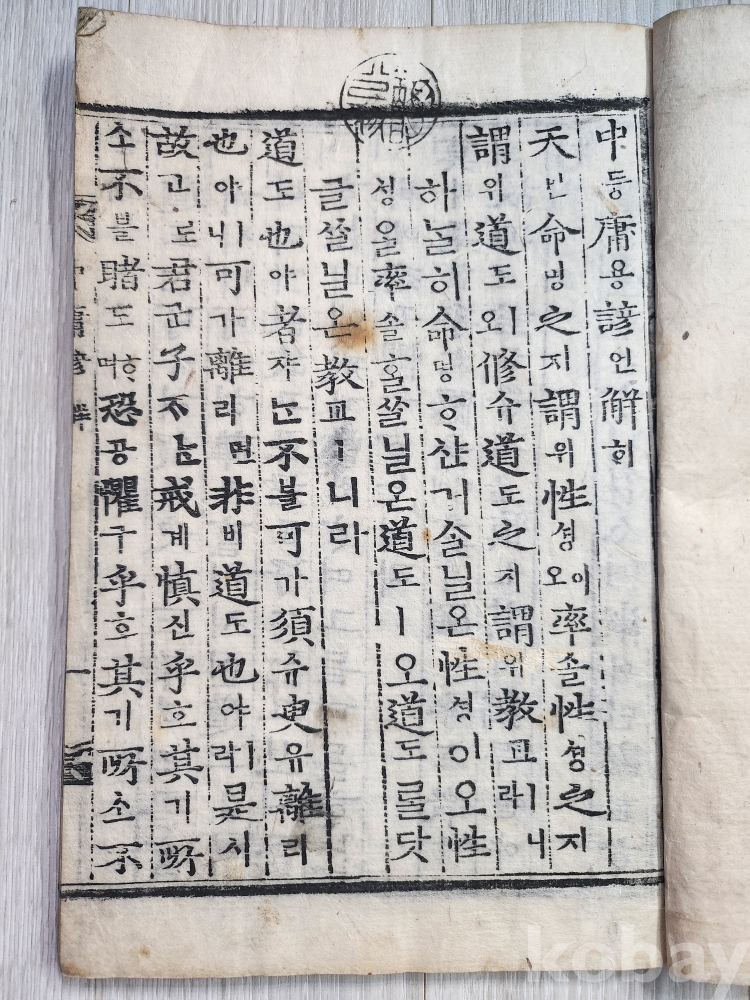 中듕庸용諺언解ᄒᆡ
天텬命명之지謂위性셩이오率솔性셩之지
謂위道도ㅣ오修슈道도之지謂위敎교ㅣ니라
하ᄂᆞᆯ히命명ᄒᆞ샨거ᄉᆞᆯ닐온性셩이오性
셩을率솔ᄒᆞᆯᄊᆞᆯ닐온道도ㅣ오道도ᄅᆞᆯ닷
글ᄊᆞᆯ닐온敎교ㅣ니라
道도也야者쟈ᄂᆞᆫ不블可가須슈臾유離리
也야ㅣ니可가離리면非비道도也야ㅣ라是시
故고로君군子ᄌᆞᄂᆞᆫ戒계愼신乎호其기所
소不블睹도ᄒᆞ며恐공懼구乎호其기所소不
庸諺解 一
kobay